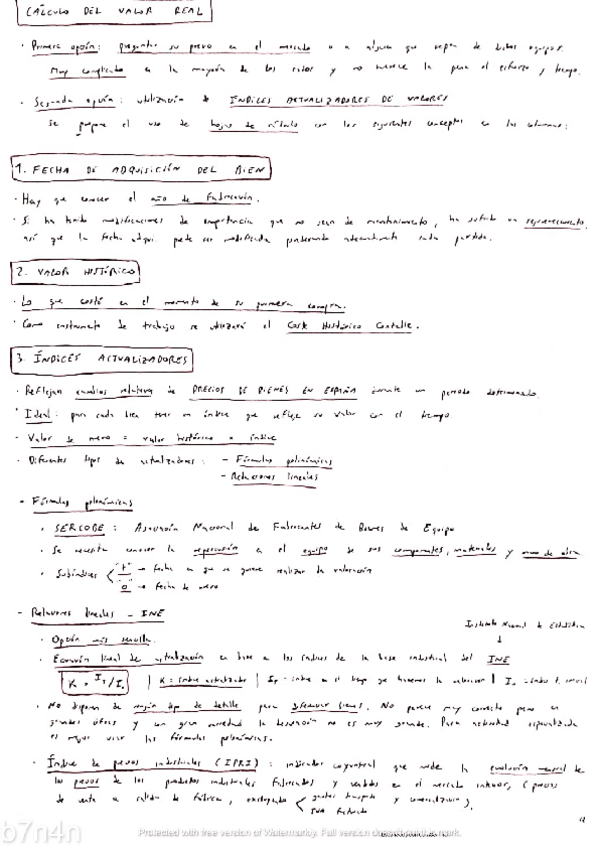 CÁLCULO DEL VALOR REAL
· Primera opción: preguntar su precio en el mercado o a alguien que sepa de dichos equipos.
Muy complicado en la mayoría de los casos y no merece la pena el esfuerzo y tiempo.
· Segunda opción: utilización de ÍNDICES ACTUALIZADORES DE VALORES
Se propone el uso de hojas de cálculo con los siguientes conceptos en las columnas:
1. FECHA DE ADQUISICIÓN DEL BIEN
· Hay que conocer el año de fabricación.
· Si ha tenido modificaciones de importancia que no sean de mantenimiento, ha sufrido un rejuvenecimiento,
así que la fecha adqui. puede ser modificada ponderando adecuadamente cada partida.
2. VALOR HISTÓRICO
· Lo que costó en el momento de su primera compra.
· Como instrumento de trabajo se utilizará el Coste Histórico Contable.
3. ÍNDICES ACTUALIZADORES
· Reflejan cambios relativos de PRECIOS DE BIENES EN ESPAÑA durante un periodo determinado
· Ideal: para cada bien tener un índice que refleje su valor con el tiempo
· Valor de nuevo = valor histórico x índice
· Diferentes tipos de actualizadores: - Fórmulas polinómicas
- Relaciones lineales
- Fórmulas polinómicas
· SERCOBE: Asociación Nacional de Fabricantes de Bienes de Equipo
· Se necesita conocer la repercusión en el equipo de sus componentes, materiales y mano de obra
· Subíndices "t" → fecha en que se quiere realizar la valoración
"o" → fecha de
- Relaciones lineales - INE
Instituto Nacional de Estadística
· Opción más sencilla.
· Ecuación lineal de actualización en base a los índices de la base industrial del INE
K = It/Io | K = índice actualizador | It = índice en el que hacemos la valoración | Io = índice
· No dispone de ningún tipo de detalle para diferenciar bienes. No parece muy correcto pero en
grandes cifras y con gran variedad la desviación no es muy grande. Para actividad especializada
es mejor usar las fórmulas polinómicas.
· Índice de precios industriales (IPRI): indicador coyuntural que mide la evolución mensual de
los precios de los productos industriales fabricados y vendidos en el mercado interior, (precios
de venta a salida de fábrica, excluyendo gastos transporte y comercialización).
IVA facturado
b7n4n
Protected with free version of Watermarkly. Full version doesn't put this mark.